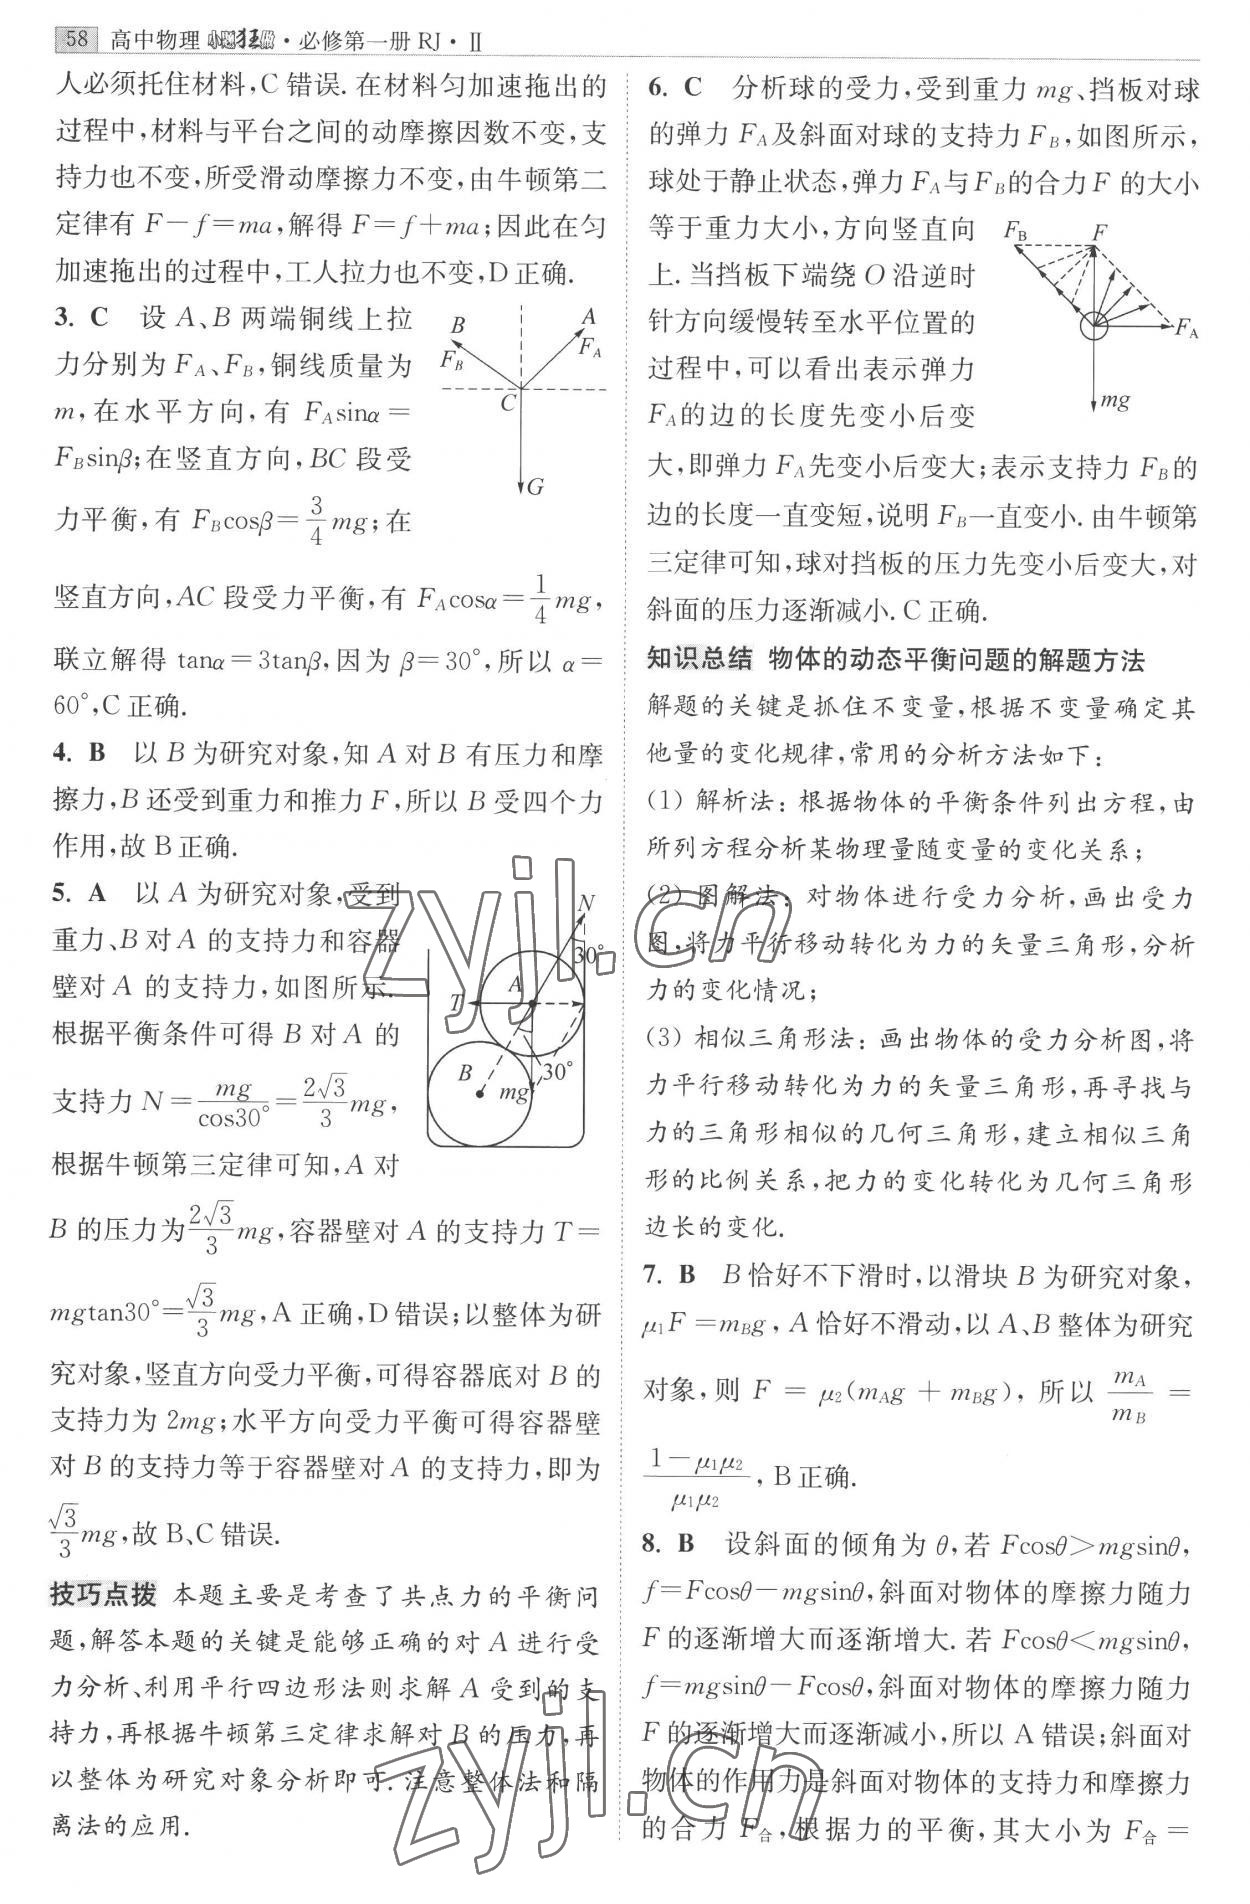 58 高中物理 小题狂做·必修第一册 RJ·Ⅱ
人必须托住材料,C错误.在材料匀加速拖出的
过程中,材料与平台之间的动摩擦因数不变,支
持力也不变,所受滑动摩擦力不变,由牛顿第二
定律有 F-f=ma,解得 F=f+ma;因此在匀
加速拖出的过程中,工人拉力也不变,D正确.
3. C 设A、B两端铜线上拉
力分别为 F_A、F_B,铜线质量为
m,在水平方向,有 F_A sinα=
F_B sinβ;在竖直方向,BC段受
力平衡,有 F_B cosβ=3/4 mg;在
B
A
F_B
F_A
C
G
竖直方向,AC段受力平衡,有 F_A cosα=1/4 mg,
联立解得 tanα=3tanβ,因为 β=30°,所以 α=
60°,C正确.
4. B 以B为研究对象,知A对B有压力和摩
擦力,B还受到重力和推力F,所以B受四个力
作用,故B正确.
5. A 以A为研究对象,受到
重力、B对A的支持力和容器
壁对A的支持力,如图所示.
根据平衡条件可得B对A的
支持力 N=mg/cos30°=2√3/3 mg,
根据牛顿第三定律可知,A对
N
30°
A
T
B
30°
mg
B的压力为2√3/3 mg,容器壁对A的支持力 T=
mgtan30°=√3/3 mg,A正确,D错误;以整体为研
究对象,竖直方向受力平衡,可得容器底对B的
支持力为2mg;水平方向受力平衡可得容器壁
对B的支持力等于容器壁对A的支持力,即为
√3/3 mg,故B、C错误.
技巧点拨 本题主要是考查了共点力的平衡问
题,解答本题的关键是能够正确的对A进行受
力分析、利用平行四边形法则求解A受到的支
持力,再根据牛顿第三定律求解对B的压力,再
以整体为研究对象分析即可.注意整体法和隔
离法的应用.
6. C 分析球的受力,受到重力 mg、挡板对球
的弹力 F_A及斜面对球的支持力 F_B,如图所示,
球处于静止状态,弹力 F_A与F_B的合力F的大小
等于重力大小,方向竖直向
上.当挡板下端绕O沿逆时
针方向缓慢转至水平位置的
过程中,可以看出表示弹力
F_A的边的长度先变小后变
F_B
F
F_A
mg
大,即弹力 F_A先变小后变大;表示支持力 F_B的
边的长度一直变短,说明 F_B一直变小.由牛顿第
三定律可知,球对挡板的压力先变小后变大,对
斜面的压力逐渐减小.C正确.
知识总结 物体的动态平衡问题的解题方法
解题的关键是抓住不变量,根据不变量确定其
他量的变化规律,常用的分析方法如下:
(1) 解析法:根据物体的平衡条件列出方程,由
所列方程分析某物理量随变量的变化关系;
(2) 图解法:对物体进行受力分析,画出受力
图,将力平行移动转化为力的矢量三角形,分析
力的变化情况;
(3) 相似三角形法:画出物体的受力分析图,将
力平行移动转化为力的矢量三角形,再寻找与
力的三角形相似的几何三角形,建立相似三角
形的比例关系,把力的变化转化为几何三角形
边长的变化.
7. B B恰好不下滑时,以滑块B为研究对象,
μ₁F=m_Bg,A恰好不滑动,以A、B整体为研究
对象,则 F=μ₂(m_Ag+m_Bg),所以 m_A/m_B=
(1-μ₁μ₂)/(μ₁μ₂),B正确.
8. B 设斜面的倾角为θ,若 Fcosθ>mgsinθ,
f=Fcosθ-mgsinθ,斜面对物体的摩擦力随力
F的逐渐增大而逐渐增大.若 Fcosθ<mgsinθ,
f=mgsinθ-Fcosθ,斜面对物体的摩擦力随力
F的逐渐增大而逐渐减小,所以A错误;斜面对
物体的作用力是斜面对物体的支持力和摩擦力
的合力 F合,根据力的平衡,其大小为 F合=
zyjl.cn
zyjl.cn